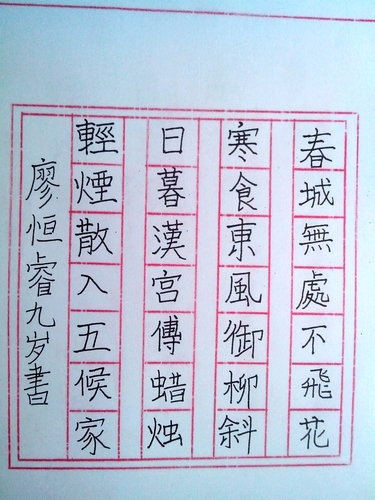 春城無處不飛花
寒食東風御柳斜
日暮漢宮傳蜡烛
輕煙散入五候家
廖恒睿九岁書